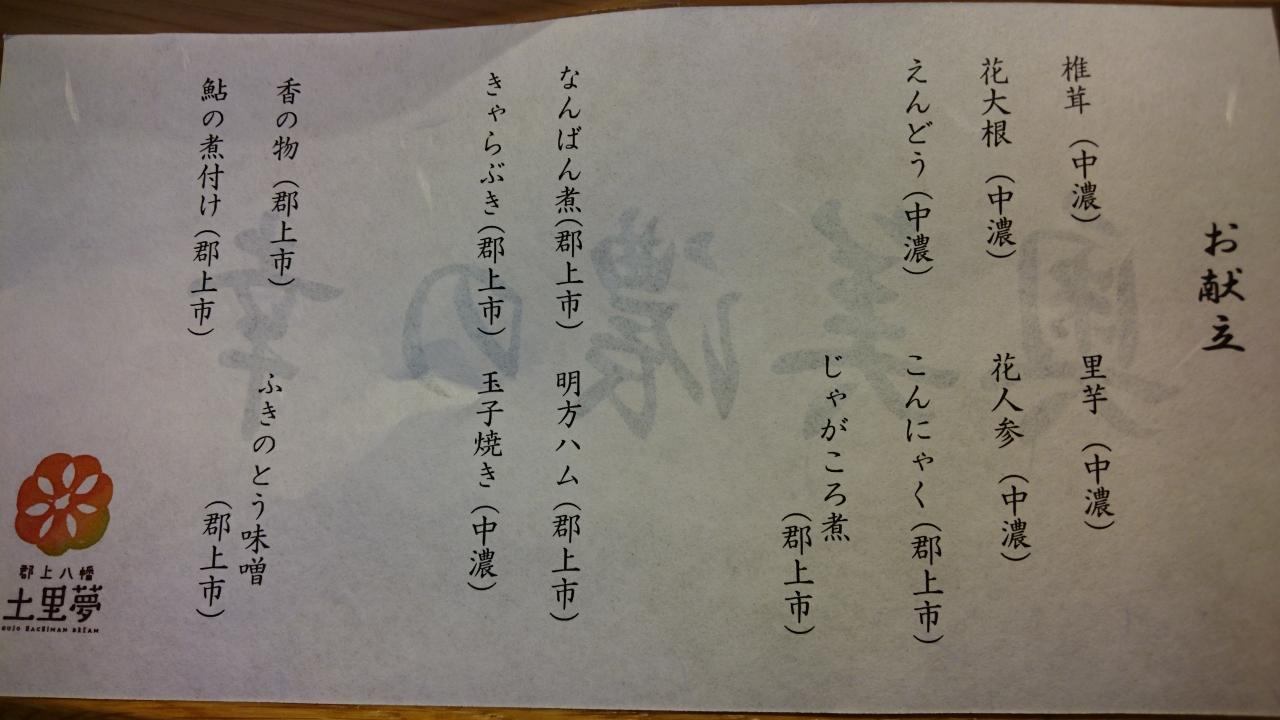 お献立
椎茸 （中濃）
里芋 （中濃）
花大根 （中濃）
花人参 （中濃）
えんどう（中濃）
こんにゃく（郡上市）
じゃがころ煮
（郡上市）
なんばん煮（郡上市）
明方ハム（郡上市）
きゃらぶき（郡上市）
玉子焼き（中濃）
香の物（郡上市）
ふきのとう味噌
（郡上市）
鮎の煮付け（郡上市）
奥美濃の幸
郡上八幡
土里夢
GUJO HACHIMAN DREAM